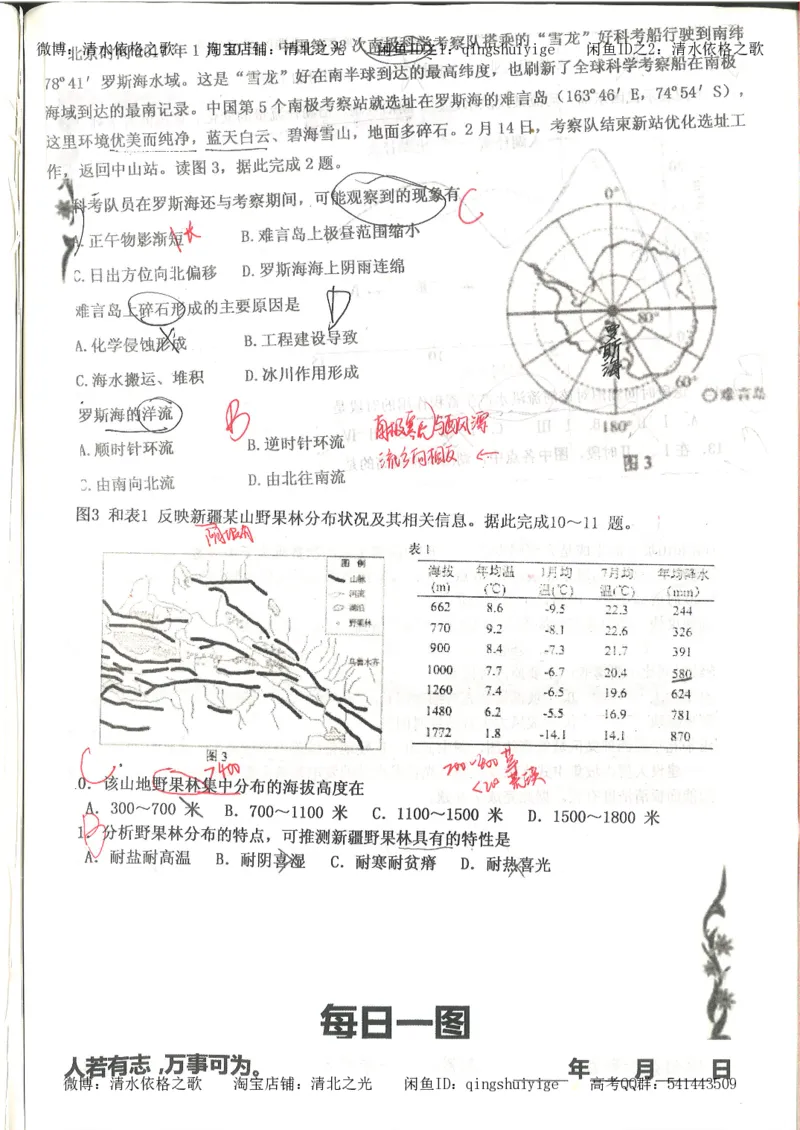 北京时间2017年1月 中国第33次南极科学考察队搭乘的“雪龙”好科考船行驶到南纬
微博：清水依格之歌 淘宝店铺：清北之光 闲鱼ID之1：qingshuiyige 闲鱼ID之2：清水依格之歌
78°41′罗斯海水域。这是“雪龙”好在南半球到达的最高纬度，也刷新了全球科学考察船在南极
海域到达的最南记录。中国第5个南极考察站就选址在罗斯海的难言岛（163°46′E，74°54′S），
这里环境优美而纯净，蓝天白云、碧海雪山，地面多碎石。2月14日，考察队结束新站优化选址工
作，返回中山站。读图3，据此完成2题。
科考队员在罗斯海还与考察期间，可能观察到的现象有
C
A.正午物影渐短 长
B.难言岛上极昼范围缩小
C.日出方位向北偏移 D.罗斯海海上阴雨连绵
难言岛上碎石形成的主要原因是
D
A.化学侵蚀形成 B.工程建设导致
C.海水搬运、堆积 D.冰川作用形成
0°
80°
60°
180°
罗斯海
难言岛
图3
罗斯海的洋流
B
A.顺时针环流 B.逆时针环流
C.由南向北流 D.由北往南流
流向相反
图3 和表1 反映新疆某山野果林分布状况及其相关信息。据此完成10～11 题。
图例
山脉
河流
湖泊
野果林
乌鲁木齐
图3
表1
海拔 年均温 1月均 7月均 年均降水
(m) (℃) 温(℃) 温(℃) (mm)
662 8.6 -9.5 22.3 244
770 9.2 -8.1 22.6 326
900 8.4 -7.3 21.7 391
1000 7.7 -6.7 20.4 580
1260 7.4 -6.5 19.6 624
1480 6.2 -5.5 16.9 781
1772 1.8 -14.1 14.1 870
C
>400
200~400 草
0．该山地野果林集中分布的海拔高度在
A．300～700 米 B．700～1100 米 C．1100～1500 米 D．1500～1800 米
B
1．分析野果林分布的特点，可推测新疆野果林具有的特性是
A．耐盐耐高温 B．耐阴喜湿 C．耐寒耐贫瘠 D．耐热喜光
每日一图
人若有志，万事可为。
年 月 日
微博：清水依格之歌 淘宝店铺：清北之光 闲鱼ID：qingshuiyige 高考QQ群：541443509